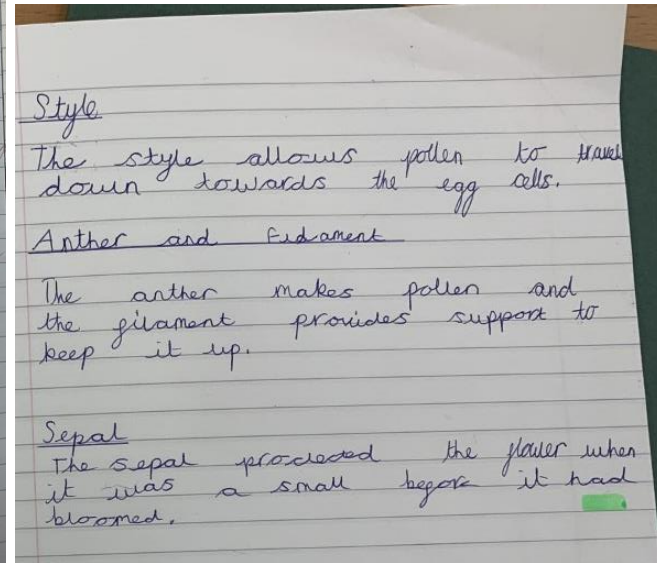 Style
The style allows pollen to travel
down towards the egg cells.
Anther and
The anther makes pollen and
the filament provides support to
keep it up.
Sepal
The sepal the flower when
it was a small before it had
bloomed.